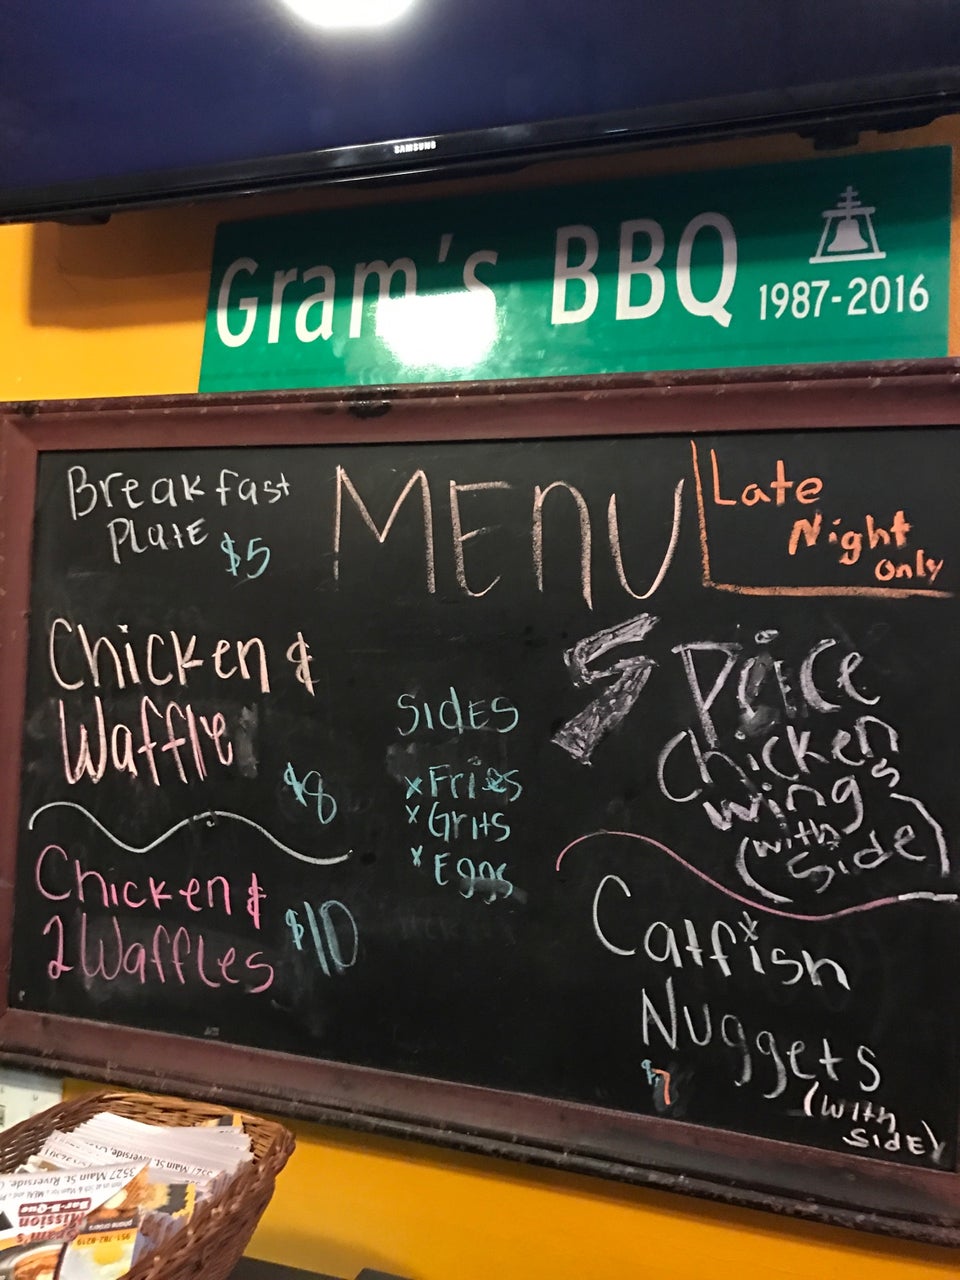 SAMSUNG
Gram's BBQ
1987-2016
Breakfast
Plate $5
MENU
Late
Night
only
Chicken &
Waffle
$8
Chicken &
2 Waffles
$10
SIDES
x Fries
x Grits
x Eggs
5 Price
Chicken
wings
(with
Side)
Catfish
Nuggets
$7
(with
SIDE)
3527 Main St. Riverside,
3527 Main St. Riverside,
Gram's
Mission
Bar-B-Que
phone orders
951-782-8219